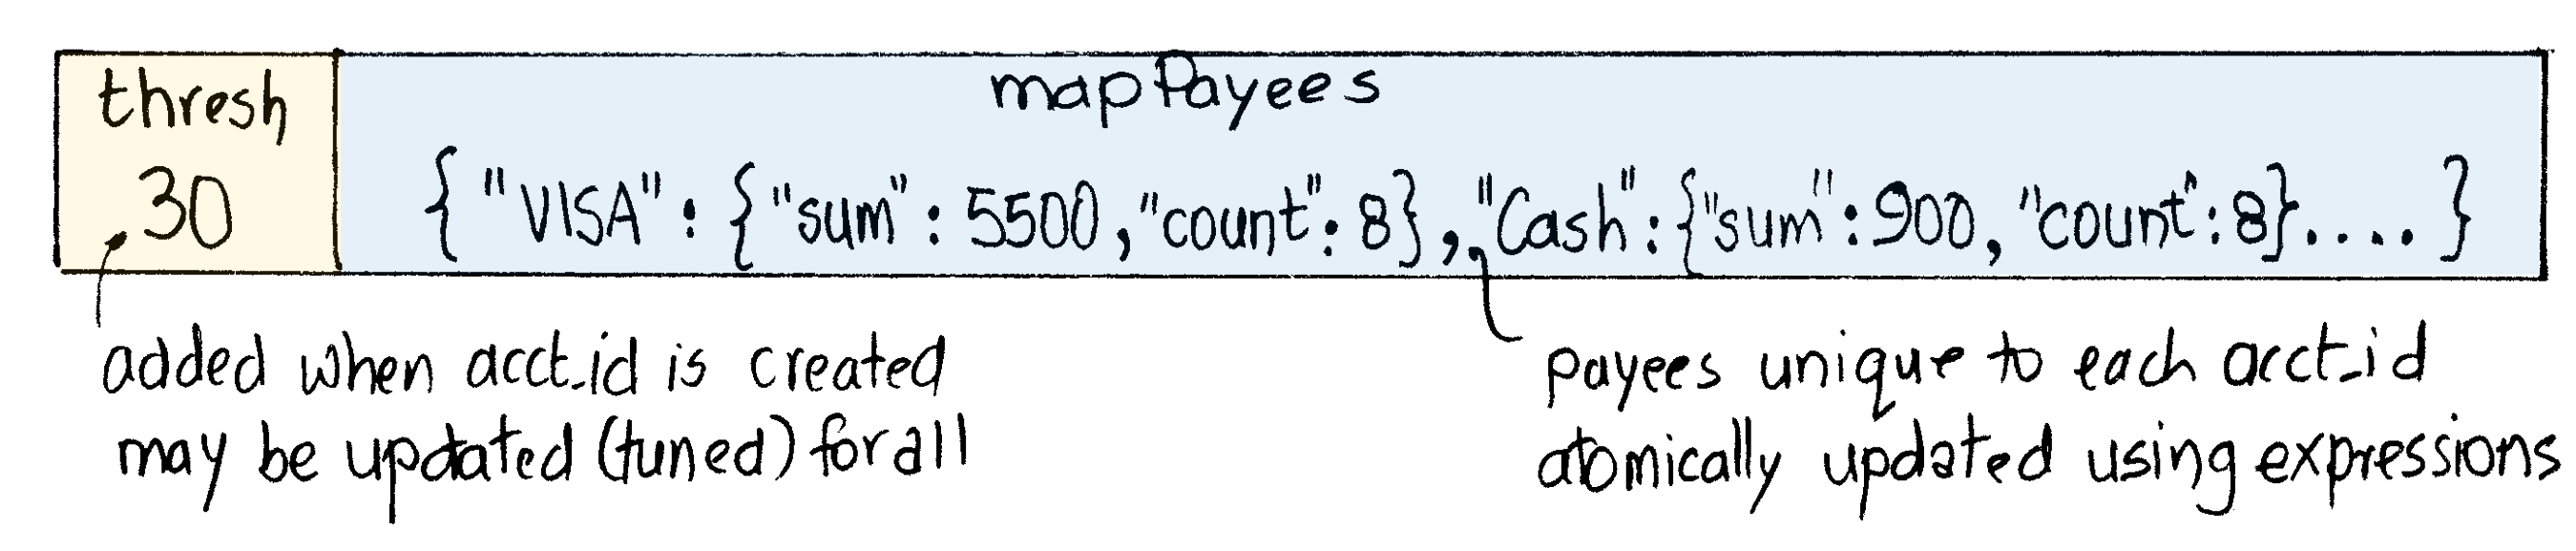 thresh
30
mapPayees
{"VISA": {"sum": 5500, "count": 8}, "Cash": {"sum": 900, "count": 8}.... }
added when acct_id is created
may be updated (tuned) for all
payees unique to each acct_id
atomically updated using expressions